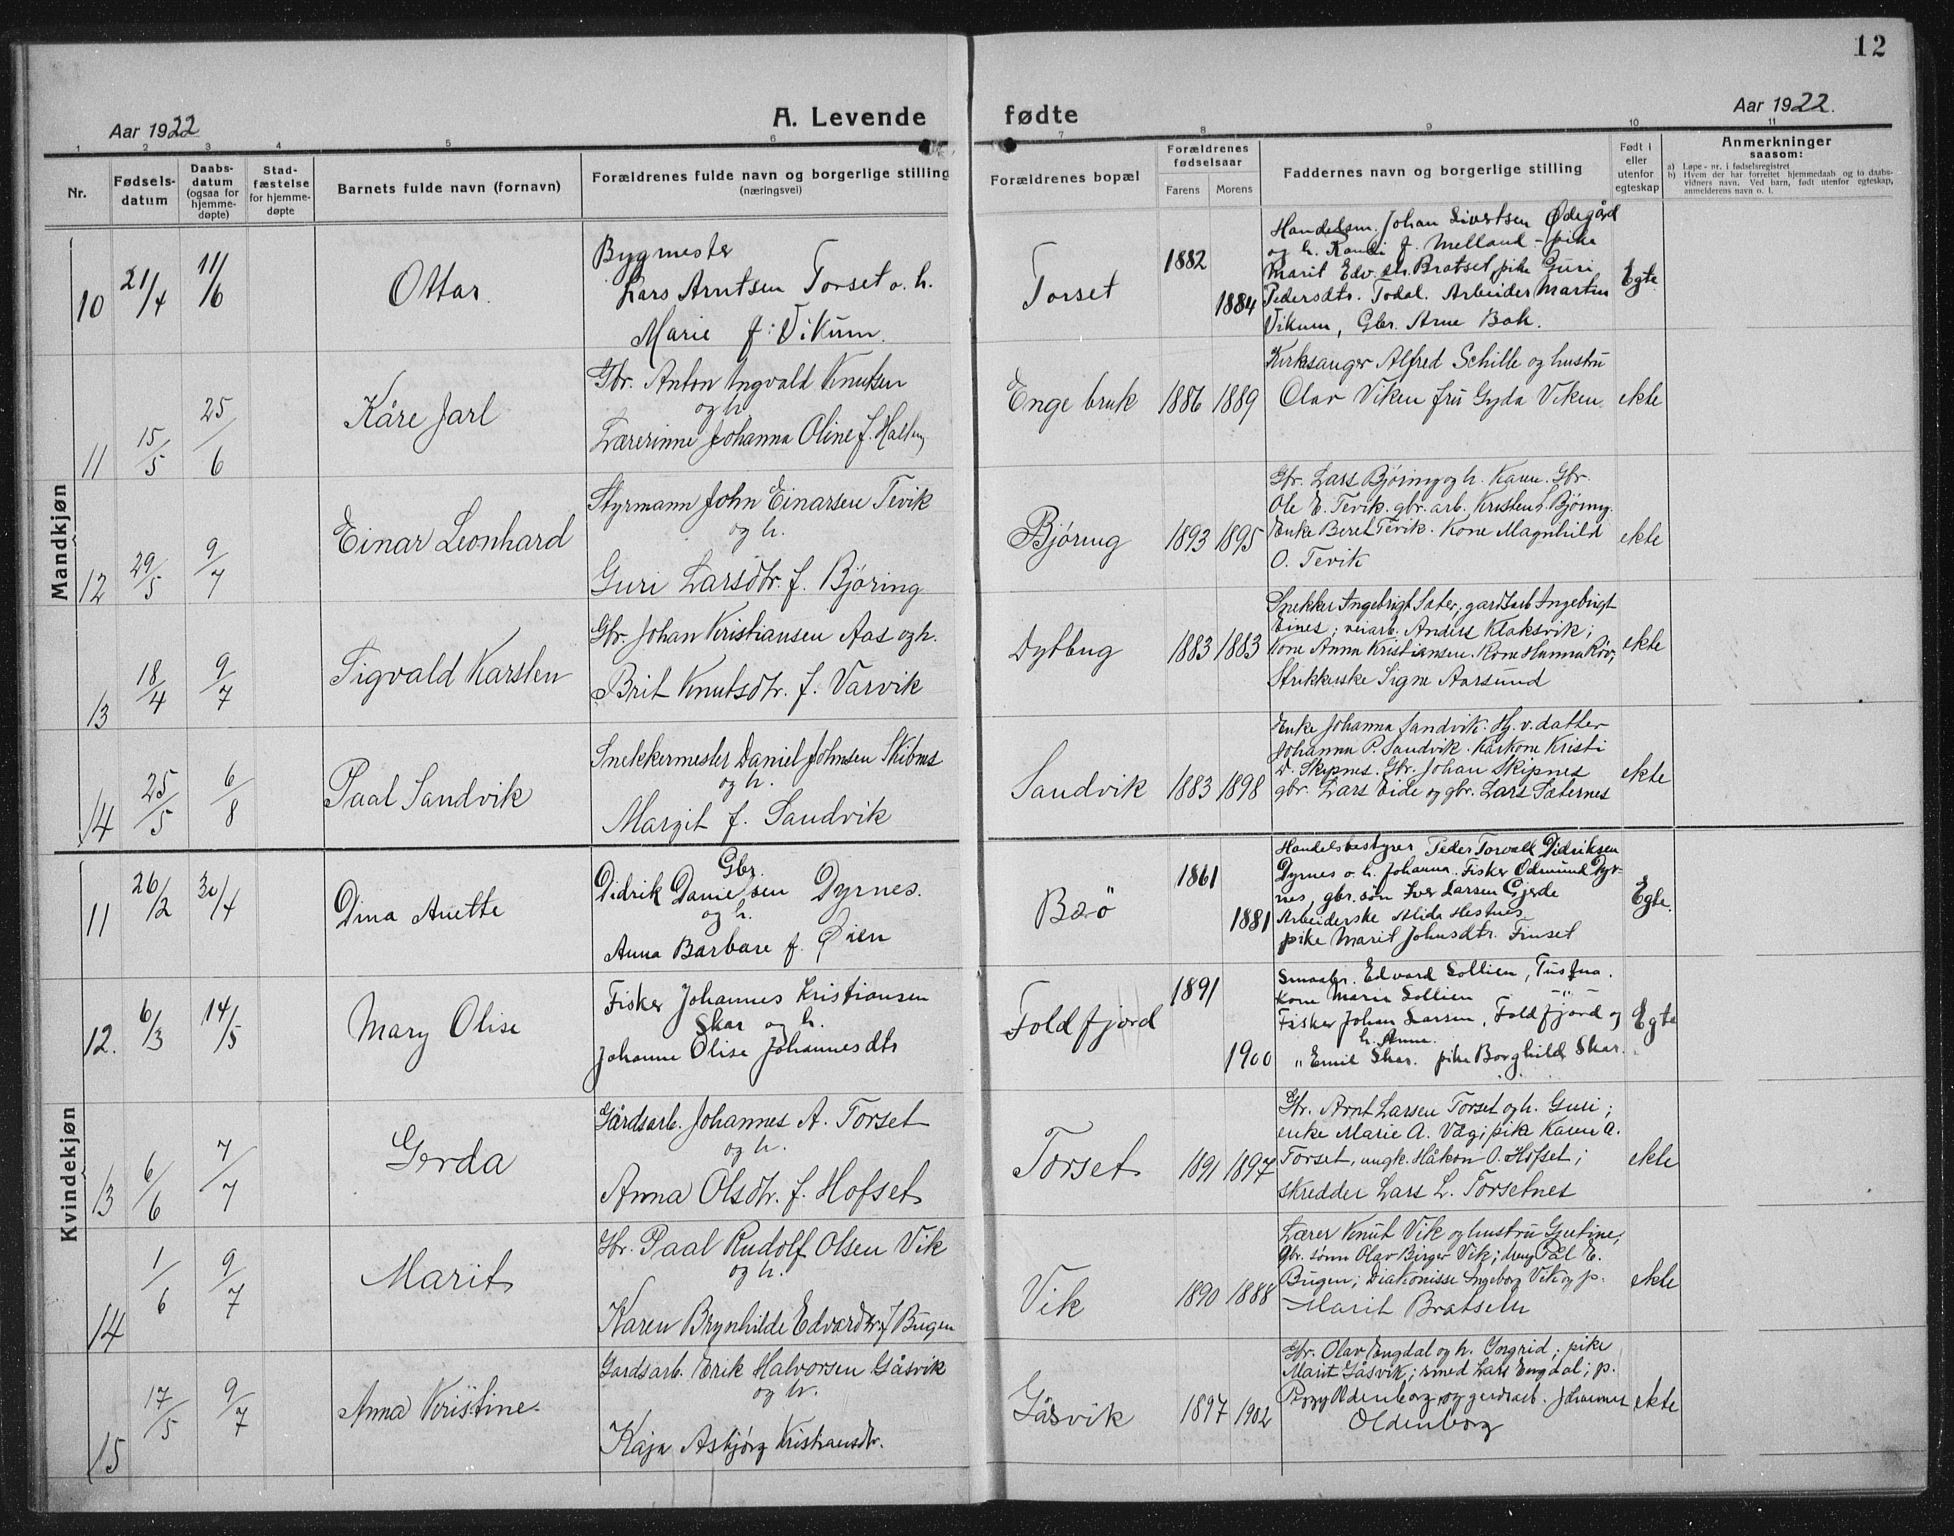 12
Aar 1922
A. Levende fødte
Aar 1922.
1 2 3 4 5 6 7 8 9 10 11
Nr.
Fødsels-
datum
Daabs-
datum
(ogsaa for
hjemme-
døpte)
Stad-
fæstelse
for hjemme-
døpte
Barnets fulde navn (fornavn)
Forældrenes fulde navn og borgerlige stilling
(næringsvei)
Forældrenes bopæl
Forældrenes
fødselsaar
Farens Morens
Faddernes navn og borgerlige stilling
Født i
eller
utenfor
egteskap
Anmerkninger
saasom:
a) Løpe-nr. i fødselsregistret
b) Hvem der har forrettet hjemmedaab og to daabs-
vidners navn. Ved barn, født utenfor egteskap,
anmelderens navn o. l.
Mandkjøn
10 21/4 11/6 Ottar.
Bygmester
Lars Arntsen Torset o. h.
Marie f: Vikum.
Torset 1882 1884
Handelsm. Johan Sivertsen Ødegård
og h. Randi f. Melland - pike
Marit Edv. dtr. Bratset, pike Guri
Pedersdtr. Todal. Arbeider Martin
Vikum, Gbr. Arne Bah.
Egte.
11 15/5 25/6 Kåre Jarl
Gbr. Anton Ingvald Knutsen
og h.
Lærerinne Johanna Oline f. Halsen
Enge bruk 1886 1889
Kirksanger Alfred Schille og hustru
Olav Viken fru Gyda Viken
ekte
12 29/5 9/7 Einar Leonhard
Styrmann John Einarsen Tevik
og h.
Guri Larsdtr. f. Bjøring
Bjøring 1893 1895
Gbr. Lars Bjøring og h. Karen. Gbr.
Ole E. Tevik. gbr. arb. Kristen L. Bjøring.
Enke Beret Tevik. Kone Magnhild
O. Tevik
ekte
13 18/4 9/7 Sigvald Karsten
Gbr. Johan Kristiansen Aas og h.
Brit Knutsdtr. f. Varvik
1883 1883
Snekker Ingebrigt Sæter, gardsarb Ingebrigt
Eines; veiarb. Anders Klaksvik;
Kone Anna Kristiansen. Kone Hanna
Strikkerske Signe Aarsund
ekte
14 25/5 6/8 Paal Sandvik
Snekkermester Daniel Johnsen Skibnes
og h.
Margit f. Sandvik
Sandvik 1883 1898
Enke Johanna Sandvik. Hj. v. datter
Johanna P. Sandvik. Kårkone Kristi
D. Skipnes. Gbr. Johan Skipnes
gbr. Lars Eide og gbr. Lars Sæternes
ekte
Kvindekjøn
11 26/2 30/4 Dina Anette
Gbr.
Didrik Danielsen Dyrnes.
og h.
Anna Barbare f. Øien
Bærø 1861 1881
Handelsbestyrer Peder Torvald Didriksen
Dyrnes o. h. Johanna. Fisker Odmund Dyr-
nes, gbr. søn Iver Larsen Gjerde
Arbeiderske Alida Hestnes
pike Marit Johnsdtr. Finset
Egte.
12. 6/3 14/5 Mary Olise
Fisker Johannes Kristiansen
Skar og h.
Johanne Olise Johannesdtr
Foldfjord 1891 1900
Smaabr. Edvard Sollien, Tustna.
Kone Marie Sollien - " -
Fisker Johan Larsen, Foldfjord og
h. Anne.
" Emil Skar. pike Borghild Skar.
Egte
13 6/6 7/7 Gerda
Gårdsarb. Johannes A. Torset
og h.
Anna Olsdtr. f. Hofset
Torset 1891 1897
Gbr. Arnt Larsen Torset og h. Guri;
enke Marie A. Våg; pike Karen A.
Torset, ungk. Håkon O. Hofset;
skredder Lars L. Torsetnes
ekte
14 1/6 9/7 Marit
Gbr. Paal Rudolf Olsen Vik
og h.
Karen Brynhilde Edvardtr. f Bugen
Vik 1890 1888
Lærer Knut Vik og hustru Gjertine;
Gbr. sønn Olav Birger Vik; Pål E.
Bugen; Diakonisse Ingeborg Vik og p.
Marit Bratseth
ekte
15 17/5 9/7 Anna Kristine
Gardsarb. Erik Halvorsen Gåsvik
og h.
Kaja Asbjørg Kristiansdtr.
Gåsvik 1897 1902
Gbr. Olav Engdal og h. Ingrid; pike
Marit Gåsvik; smed Lars Engdal; p.
Peggy Oldenborg, og gardsarb. Johannes
Oldenborg
ekte